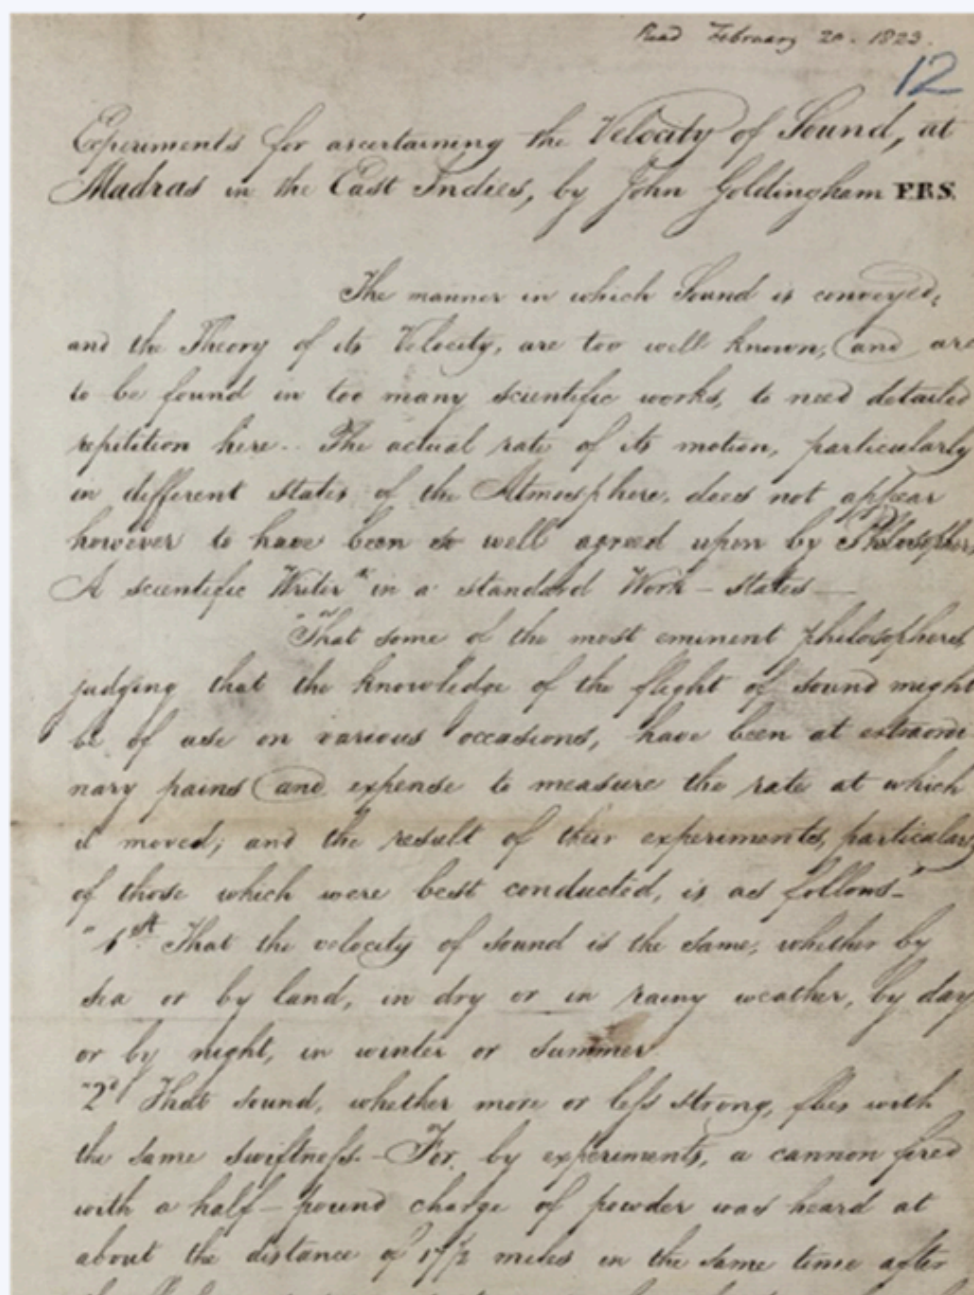 Read February 20. 1823.
12
Experiments for ascertaining the Velocity of Sound, at
Madras in the East Indies, by John Goldingham F.R.S.
The manner in which Sound is conveyed,
and the Theory of its Velocity, are too well known, and are
to be found in too many scientific works, to need detailed
repitition here.. The actual rate of its motion, particularly
in different states of the Atmosphere, does not appear
however to have been so well agreed upon by Philosophers
A scientific Writer * in a standard Work – states —
"That some of the most eminent philosophers
judging that the knowledge of the flight of sound might
be of use on various occasions, have been at extraordi-
nary pains and expense to measure the rate at which
it moved; and the result of their experiments, particularly
of those which were best conducted, is as follows –"
"1st That the velocity of sound is the same, whether by
sea or by land, in dry or in rainy weather, by day
or by night, in winter or summer.
"2d That sound, whether more or less strong, flies with
the same swiftness – For, by experiments, a cannon fired
with a half – pound charge of powder was heard at
about the distance of 17½ miles in the same time after